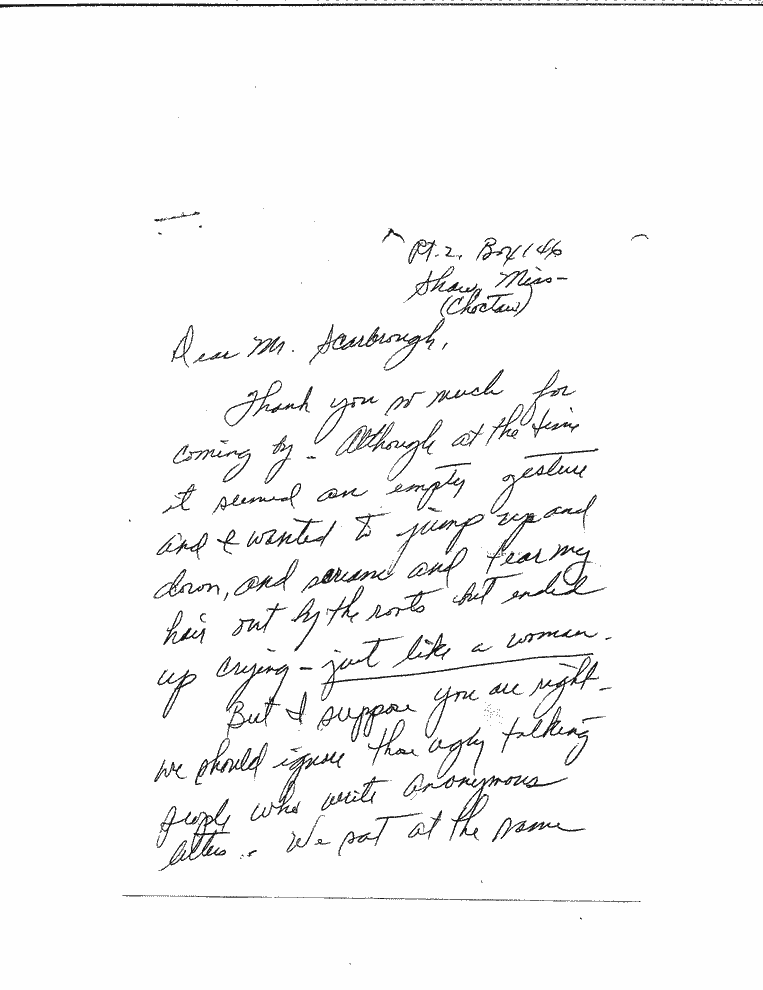 Rt. 2, Box 146
Shaw, Miss-
(Choctaw)
Dear Mr. Scarbrough,
Thank you so much for
coming by - Although at the time
it seemed an empty gesture
and I wanted to jump up and
down, and scream and tear my
hair out by the roots but ended
up crying - just like a woman.
But I suppose you are right -
we should ignore those ugly talking
people who write anonymous
letters -. We sat at the same